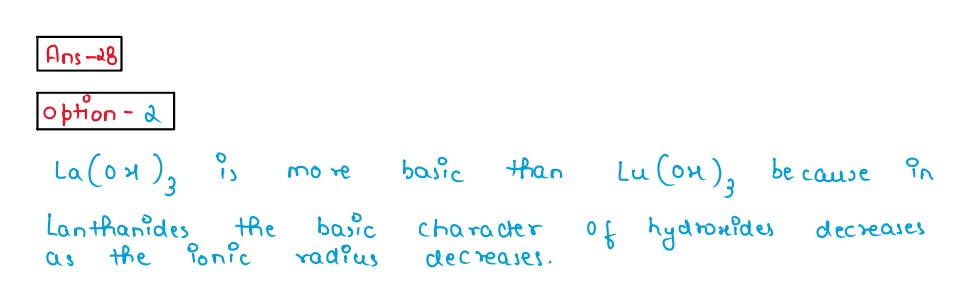 Ans-28
option - 2
La(OH)₃ is more basic than Lu(OH)₃ because in
Lanthanides the basic character of hydroxides decreases
as the ionic radius decreases.